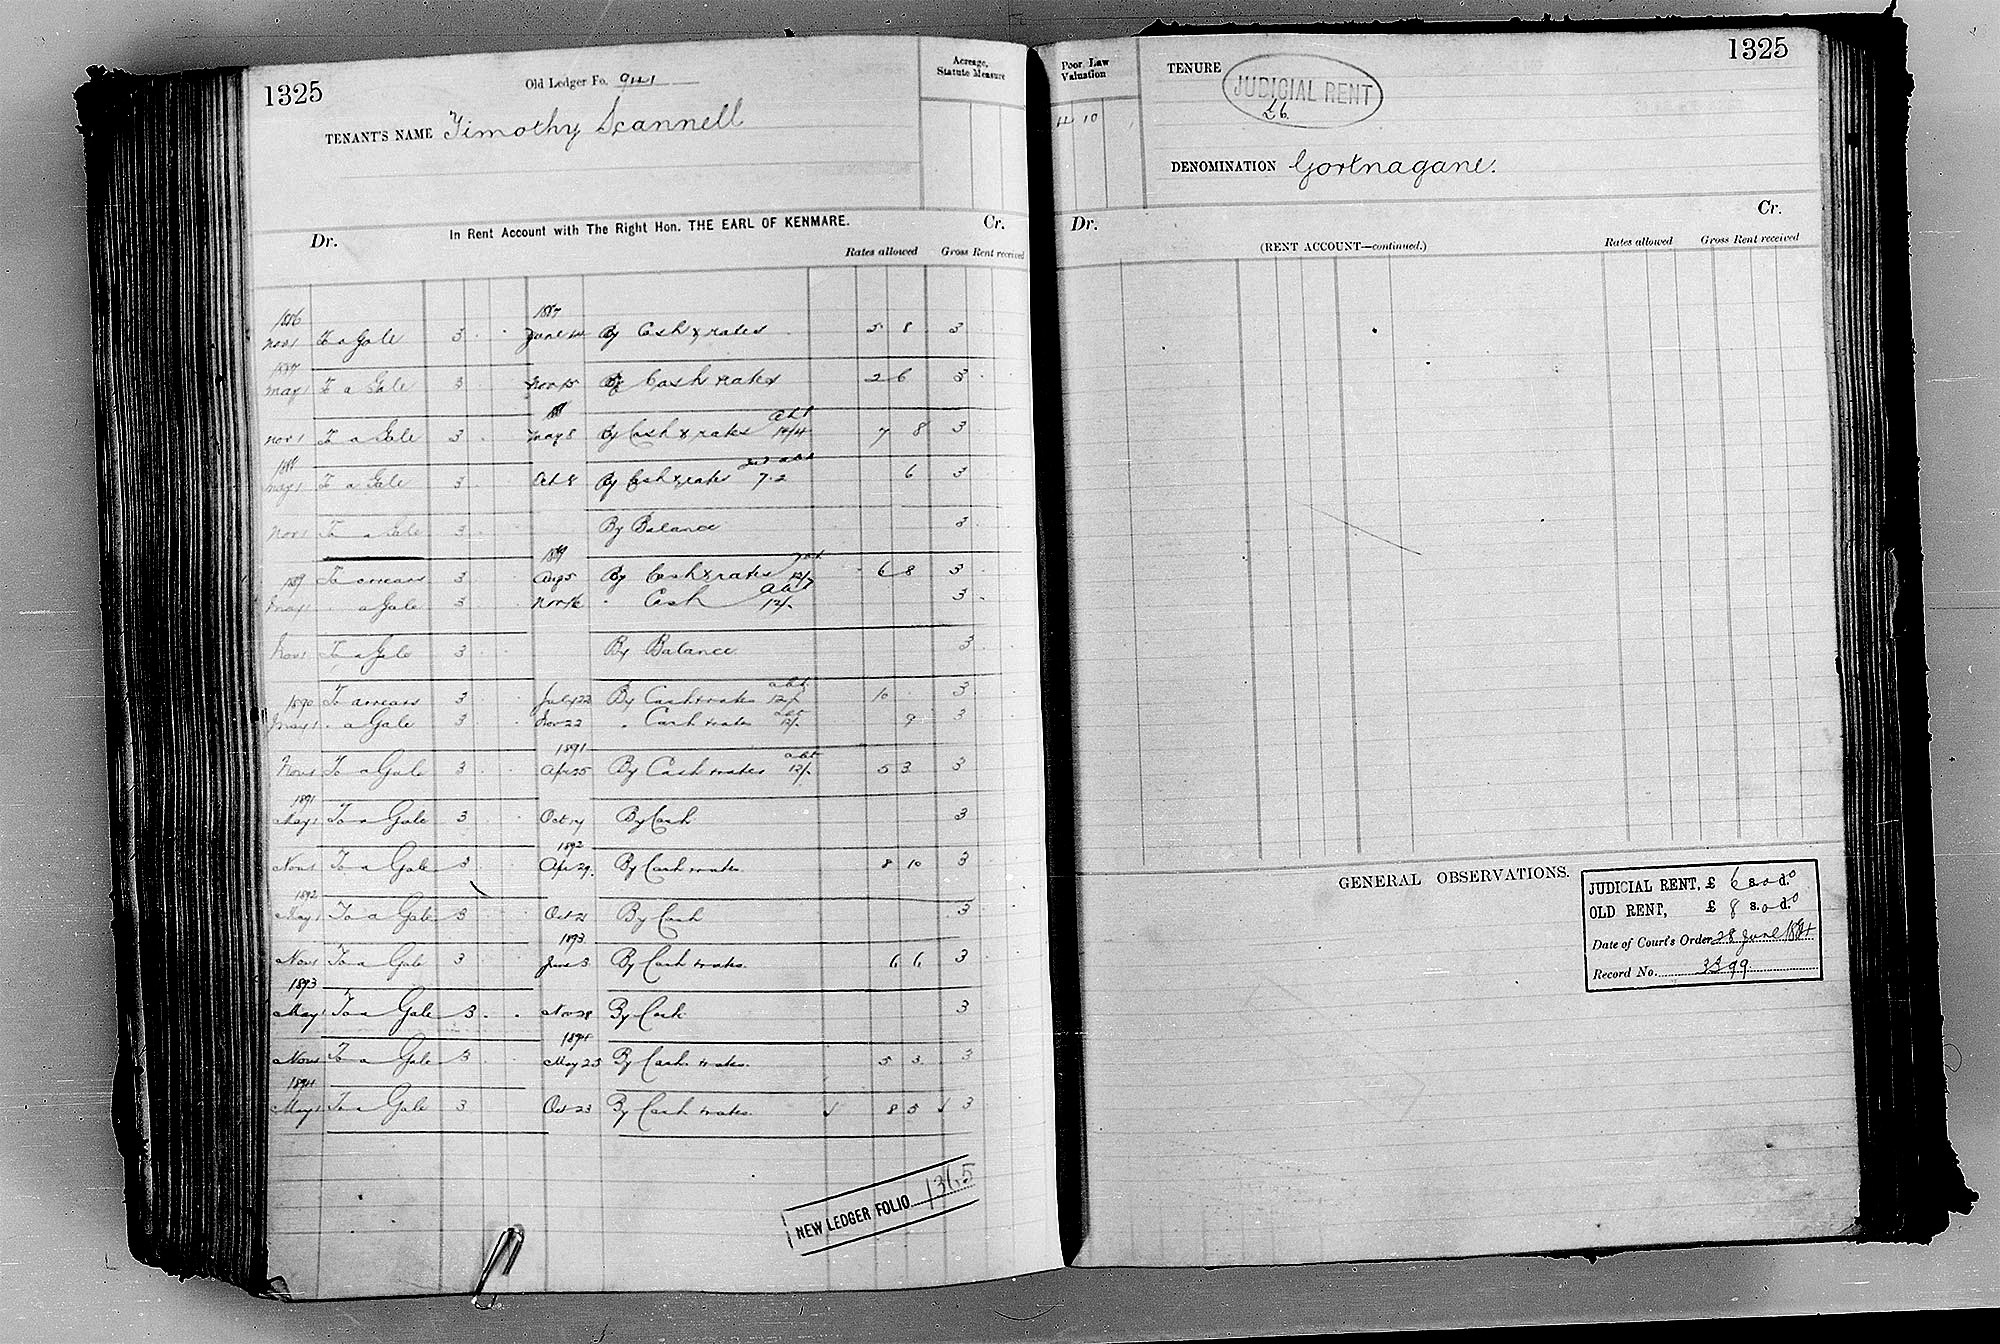 1325
Old Ledger Fo. 941
Acreage, Statute Measure
TENANT'S NAME Timothy Scannell
In Rent Account with The Right Hon. THE EARL OF KENMARE.
Dr. Cr.
Rates allowed Gross Rent received
1886 1887
Nov 1 To a Gale 3 June 14 By Cash & rates 5 8 3
1887
May 1 To a Gale 3 Nov 15 By Cash & rates 2 6 3
1888
Nov 1 To a Gale 3 May 8 By Cash & rates abt 14/4 7 8 3
1888
May 1 To a Gale 3 Oct 8 By Cash & rates 7.2 6 3
Nov 1 To a Gale 3 By Balance 3
1889
1889 To arrears 3 Aug 5 By Cash & rates 6 8 3
May 1 " a Gale 3 Nov 16 " Cash abt 12/- 3
Nov 1 To a Gale 3 By Balance 3
1890 To arrears 3 July 22 By Cash & rates abt 12/- 10 3
May 1 " a Gale 3 Nov 22 " Cash & rates 12/- 9 3
1891
Nov 1 To a Gale 3 Apr 25 By Cash & rates abt 12/- 5 3 3
1891
May 1 To a Gale 3 Oct 14 By Cash 3
1892
Nov 1 To a Gale 3 Apr 29. By Cash & rates. 8 10 3
1892
May 1 To a Gale 3 Oct 21 By Cash 3
1893
Nov 1 To a Gale 3 June 3 By Cash & rates. 6 6 3
1893
May 1 To a Gale 3 Nov 28 By Cash 3
1894
Nov 1 To a Gale 3 May 25 By Cash & rates. 5 3 3
1894
May 1 To a Gale 3 Oct 23 By Cash & rates. 8 5 3
NEW LEDGER FOLIO 1365
1325
Poor Law Valuation
4 10
TENURE
JUDICIAL RENT
£6.
DENOMINATION Gortnagane.
Dr. Cr.
(RENT ACCOUNT—continued.)
Rates allowed Gross Rent received
GENERAL OBSERVATIONS.
JUDICIAL RENT, £ 6 s. 0 d. 0
OLD RENT, £ 8 s. 0 d. 0
Date of Court's Order 28 June 1884
Record No. 3399